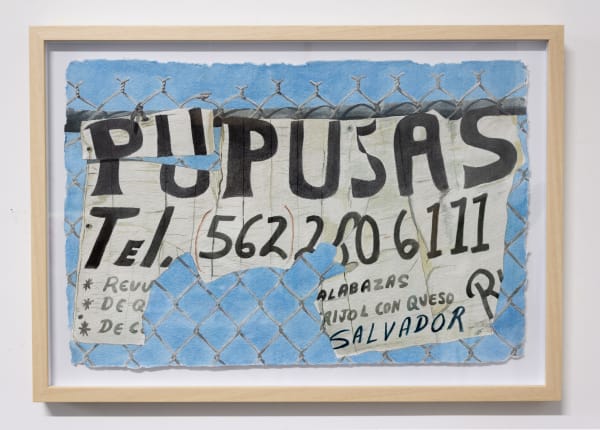 PUPUSAS
Tel. (562) 200-6111
* REVU ALABAZAS
* DE Q RIJOL CON QUESO
* DE C SALVADOR